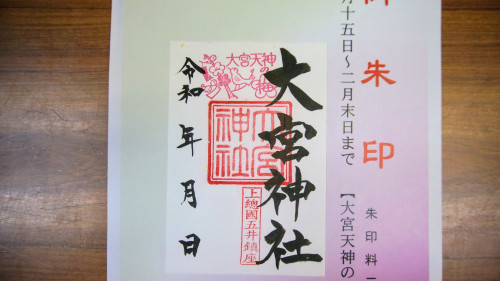 御朱印
月十五日～二月末日まで
朱印料
【大宮天神の
大宮天神の梅
大宮神社
大宮神社
上總國五井鎮座
令和 年 月 日